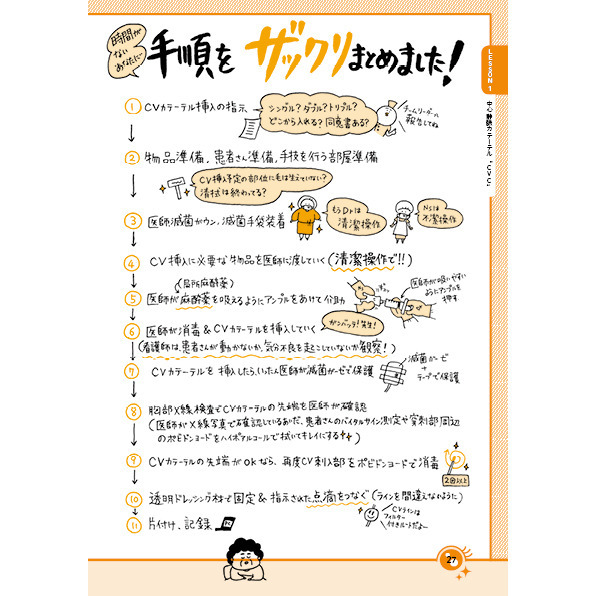 時間が
ない
あなたに…
手順を ザックリまとめました!
LESSON 1
中心静脈カテーテル "CVC"
① CVカテーテル挿入の指示
シングル?ダブル?トリプル?
どこから入れる?同意書ある?
チームリーダーに
報告してね
② 物品準備、患者さん準備、手技を行う部屋準備
CV挿入予定の部位に毛は生えていない?
清拭は終わってる?
③ 医師滅菌ガウン、滅菌手袋装着
もうDrは
清潔操作
Nsは
不潔操作
④ CV挿入に必要な物品を医師に渡していく(清潔操作で!!)
(局所麻酔薬)
⑤ 医師が麻酔薬を吸えるようにアンプルをあけて介助
医師が吸いやすい
ようにアンプルを
押す
⑥ 医師が消毒&CVカテーテルを挿入していく
ガンバッテ!先生!
(看護師は、患者さんが動かないか、気分不良を起こしていないか観察!)
⑦ CVカテーテルを挿入したら、いったん医師が滅菌ガーゼで保護
滅菌ガーゼ
+
テープで保護
⑧ 胸部X線検査でCVカテーテルの先端を医師が確認
(医師がX線写真で確認しているあいだ、患者さんのバイタルサイン測定や穿刺部周辺
のポビドンヨードをハイポアルコールで拭いてキレイにする)
⑨ CVカテーテルの先端がOKなら、再度CV刺入部をポビドンヨードで消毒
2回以上
⑩ 透明ドレッシング材で固定&指示された点滴をつなぐ(ラインを間違えないように)
CVラインは
フィルター
付きルートだよ〜
⑪ 片付け、記録
27